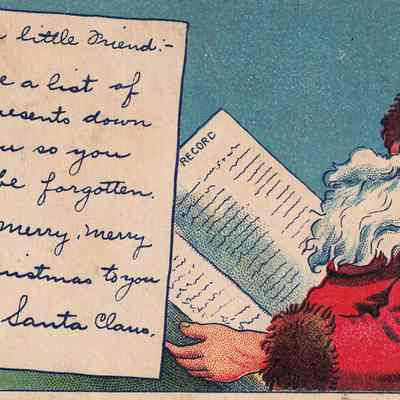 little Friend:-
e a list of
resents down
u so you
be forgotten.
Merry, Merry
ristmas to you
Santa Claus.
RECORD